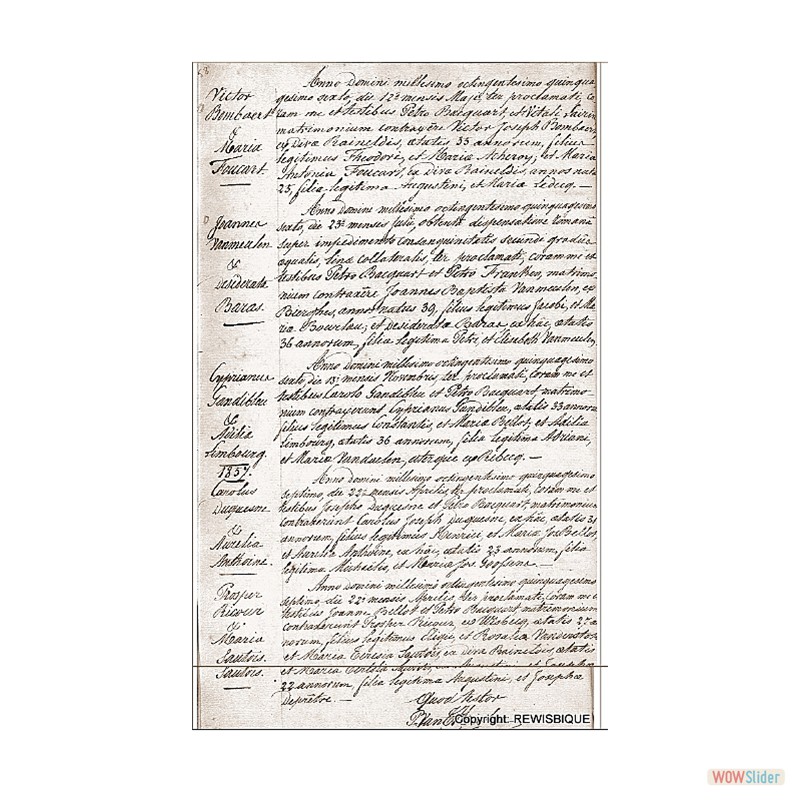 Victor
Bombaert
&
Maria
Foucart.
Anno Domini millesimo octingentesimo quinqua
gesimo sexto, die 12ª mensis Maji, ter proclamati, co
ram me et testibus Petro Bacquart, et Vitali
matrimonium contraxêre Victor Joseph Bombaert
ex Diva Raineldis, ætatis 33 annorum, filius
legitimus Theodori, et Mariæ Acheroy, et Maria
Antonia Foucart, ex Diva Raineldis, annos nata
25, filia legitima Augustini, et Maria Ledecq. —
Joannes
Vanmeulen
&
Desiderata
Baras.
Anno Domini millesimo octingentesimo quinquagesimo
sexto, die 23ª mensis Julii, obtentâ dispensatione Romanâ
super impedimento consanguinitatis secundi gradûs
æqualis, lineâ collateralis, ter proclamati, coram me et
testibus Petro Bacquart et Petro Franken, matrimo
nium contraxêre Joannes Baptista Vanmeulen, ex
Bierghes, annos natus 39, filius legitimus Jacobi, et Ma
riæ Bourlau, et Desiderata Baras ex hâc, ætatis
36 annorum, filia legitima Petri, et Elisabeth Vanmeulen,
Cyprianus
Gandibleu
&
Adilia
Limbourg.
Anno Domini millesimo octingentesimo quinquagesimo
sexto, die 13ª mensis Novembris, ter proclamati, coram me et
testibus Carolo Gandibleu et Petro Bacquart, matrimo-
nium contraxerunt Cyprianus Gandibleu, ætatis 33 annorum
filius legitimus Constantis, et Mariæ Bellot, et Adilia
Limbourg, ætatis 36 annorum, filia legitima Adriani,
et Mariæ Vandaelen, uterque ex Rebecq. —
1857.
Carolus
Duquesne
&
Aurelia
Anthoine.
Anno Domini millesimo octingentesimo quinquagesimo
septimo, die 22ª mensis Aprilis, ter proclamati, coram me et
testibus Josepho Duquesne et Petro Bacquart, matrimonium
contraxerunt Carolus Joseph Duquesne, ex hâc, ætatis 31
annorum, filius legitimus Henrici, et Mariæ Jos. Bellot,
et Aurelia Anthoine, ex hâc, ætatis 23 annorum, filia
legitima Michaelis, et Maria Jos.
Prosper
Ricour
&
Maria
Sautois.
Anno Domini millesimo octingentesimo quinquagesimo
septimo, die 22ª mensis Aprilis, ter proclamati, coram me et
testibus Joanne Bellot et Petro Bacquart matrimonium
contraxerunt Prosper Ricour, ex Wisbecq, ætatis
norum, filius legitimus Eligii, et Rosalia
et Maria Teresia Sautois, ex Diva Raineldis, ætatis
Sautois.
22 annorum, filia legitima Augustini, et Josephæ
Deprêtre. —
Quod testor
P. Van
Copyright: REWISBIQUE
WOWSlider